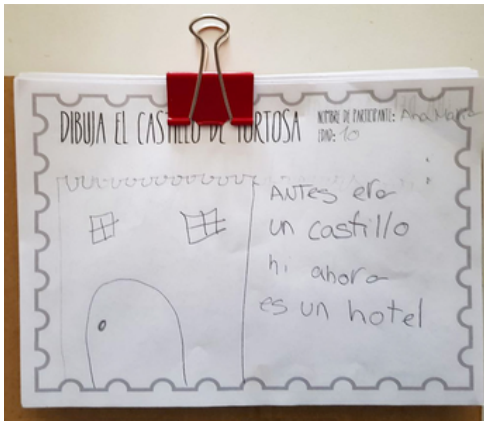 DIBUJA EL CASTILLO DE TORTOSA
NOMBRE DE PARTICIPANTE: Ana María
EDAD: 10
ANTES era
un castillo
hi ahora
es un hotel